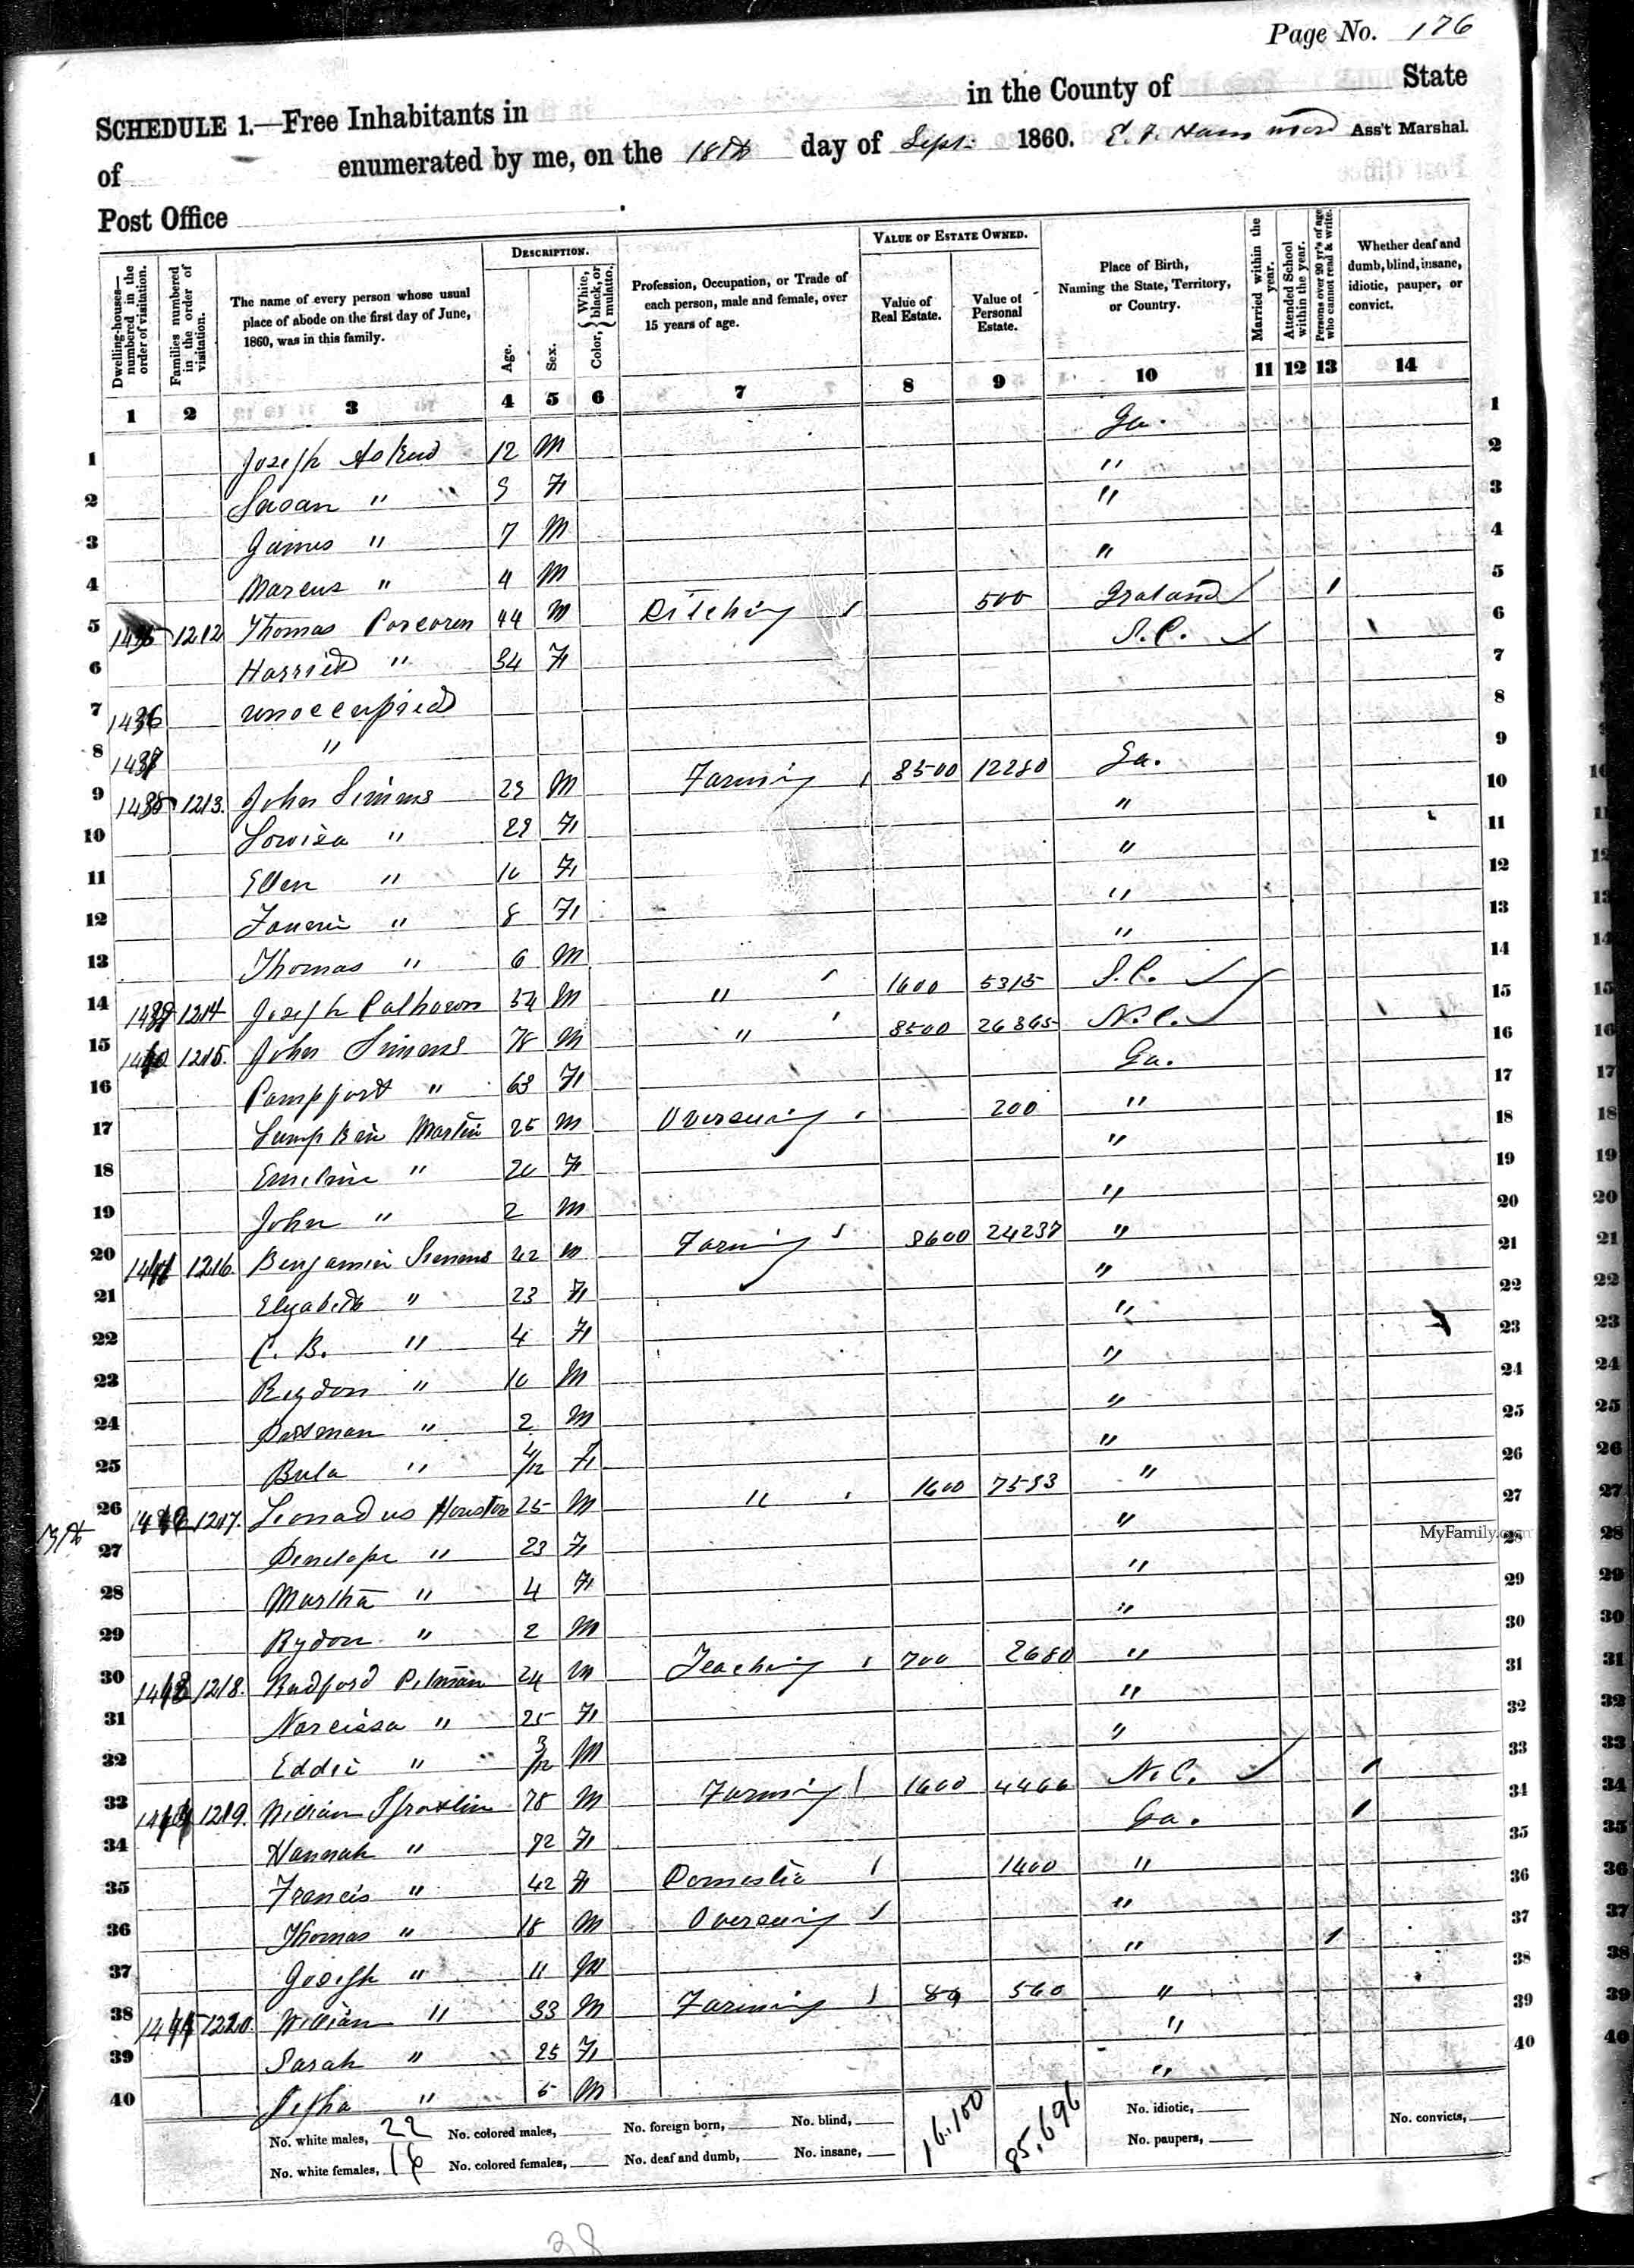 Page No. 176
SCHEDULE 1.—Free Inhabitants in in the County of State
of enumerated by me, on the 18th day of Sept. 1860. Ass't Marshal.
Post Office
Dwelling-houses—numbered in the order of visitation.
Families numbered in the order of visitation.
The name of every person whose usual place of abode on the first day of June, 1860, was in this family.
DESCRIPTION.
Age.
Sex.
Color, { White, black, or mulatto.
Profession, Occupation, or Trade of each person, male and female, over 15 years of age.
VALUE OF ESTATE OWNED.
Value of Real Estate.
Value of Personal Estate.
Place of Birth, Naming the State, Territory, or Country.
Married within the year.
Attended School within the year.
Persons over 20 y'rs of age who cannot read & write.
Whether deaf and dumb, blind, insane, idiotic, pauper, or convict.
1 2 3 4 5 6 7 8 9 10 11 12 13 14
1 Joseph 12 M Ga. 1
2 Susan " 9 F " 2
3 James " 7 M " 3
4 Marcus " 4 M " 4
5 1212 Thomas 44 M Ditching 500 1 5
6 Harriet " 34 F S.C. 6
7 1436 unoccupied 7
8 1437 " 8
9 1438 1213. John Simms 29 M Farming 8500 12280 Ga. 9
10 Lowiza " 29 F " 10
11 Ellen " 10 F " 11
12 " 8 F " 12
13 Thomas " 6 M " 13
14 1439 1214 Joseph Calhoun 54 M " 1600 5315 S.C. 14
15 1215. John Simms 78 M " 8500 26865 N.C. 15
16 " 63 F Ga. 16
17 Martin 25 M Overseeing 200 " 17
18 Emeline " 20 F " 18
19 John " 2 M " 19
20 1216. Benjamin 42 M Farming 24237 " 20
21 Elizabeth " 23 F " 21
22 C. B. " 4 F " 22
23 " 10 M " 23
24 " 2 M " 24
25 Bula " 4/12 F " 25
26 1217. Leonadus Houston 25 M " 1600 7593 " 26
27 Penelope " 23 F " 27
28 Martha " 4 F " 28
29 Rydon " 2 M " 29
30 1218. Radford Pitman 24 M Teaching 700 2680 " 30
31 Narcissa " 25 F " 31
32 Eddie " 3/12 M " 32
33 1219. William 78 M Farming 1600 4466 N.C. 1 33
34 Hannah " 72 F Ga. 1 34
35 Francis " 42 F Domestic 1400 " 35
36 Thomas " 18 M Overseeing " 36
37 Joseph " 11 M " 1 37
38 1220. William " 33 M Farming 560 " 38
39 Sarah " 25 F " 39
40 " 5 M " 40
No. white males, 22 No. colored males, No. foreign born, No. blind, 16,100 85,696 No. idiotic, No. convicts,
No. white females, 16 No. colored females, No. deaf and dumb, No. insane, No. paupers,
38
MyFamily.com